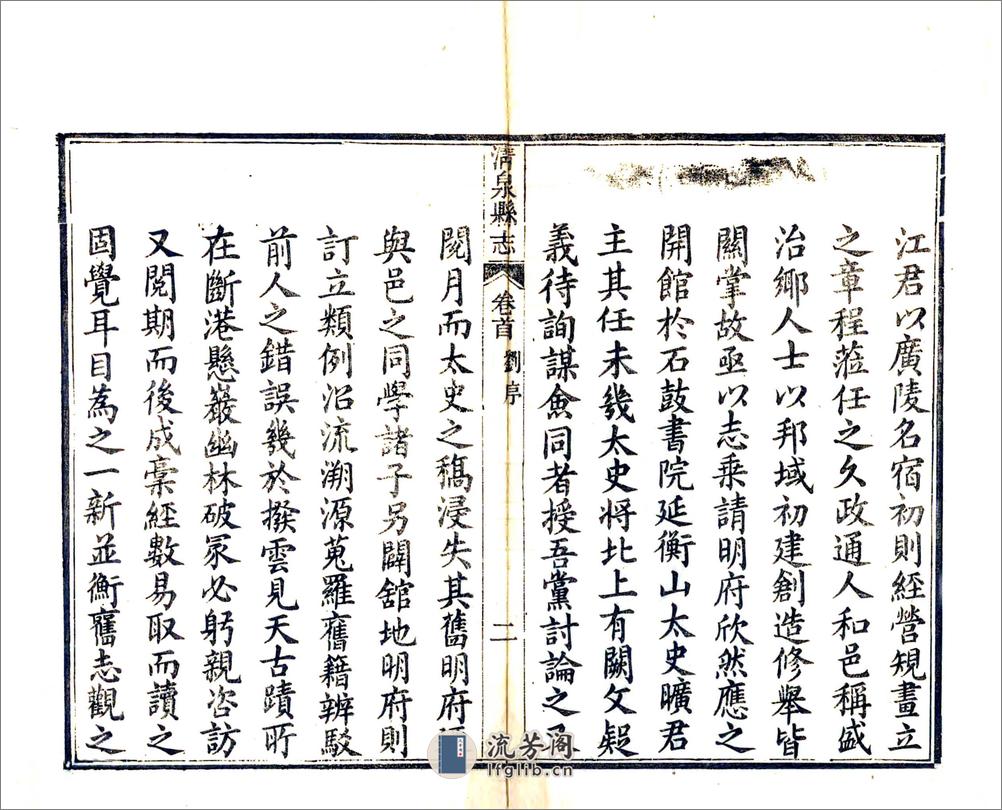 江君以廣陵名宿初則經營規畫立
之章程蒞任之久政通人和邑稱盛
治鄉人士以邦域初建創造修舉皆
關掌故亟以志乘請明府欣然應之
開館於石鼓書院延衡山太史曠君
主其任未幾太史将北上有闕文疑
義待詢謀僉同者授吾黨討論之
清泉縣志
卷首
劉序
二
閱月而太史之稿浸失其舊明府
與邑之同學諸子另闢舘地明府則
訂立類例沿流溯源蒐羅舊籍辨駁
前人之錯誤幾於撥雲見天古蹟所
在斷港懸巖幽林破冢必躬親咨訪
又閱期而後成稾經數易取而讀之
固覺耳目為之一新並衡舊志觀之
流芳阁
lfglib.cn